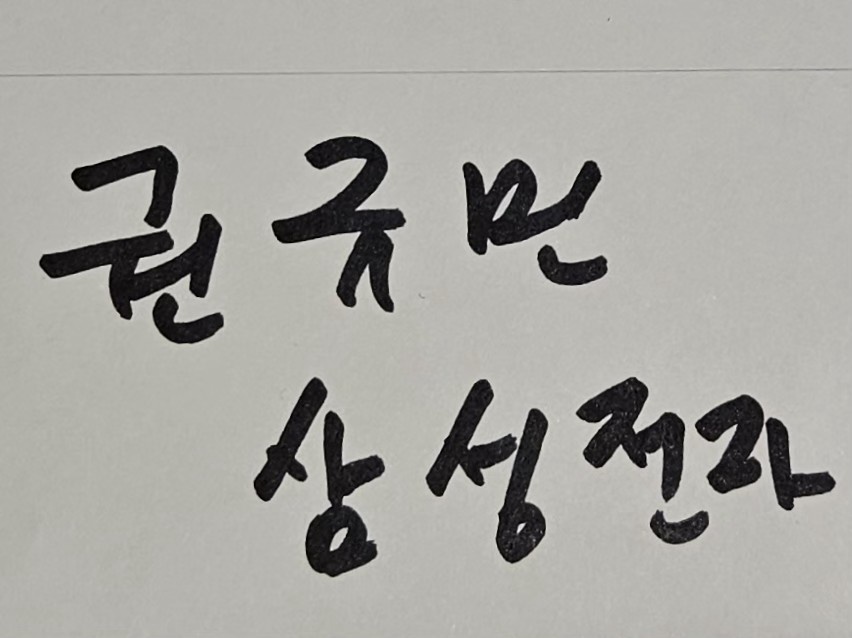 권규민
삼성전자